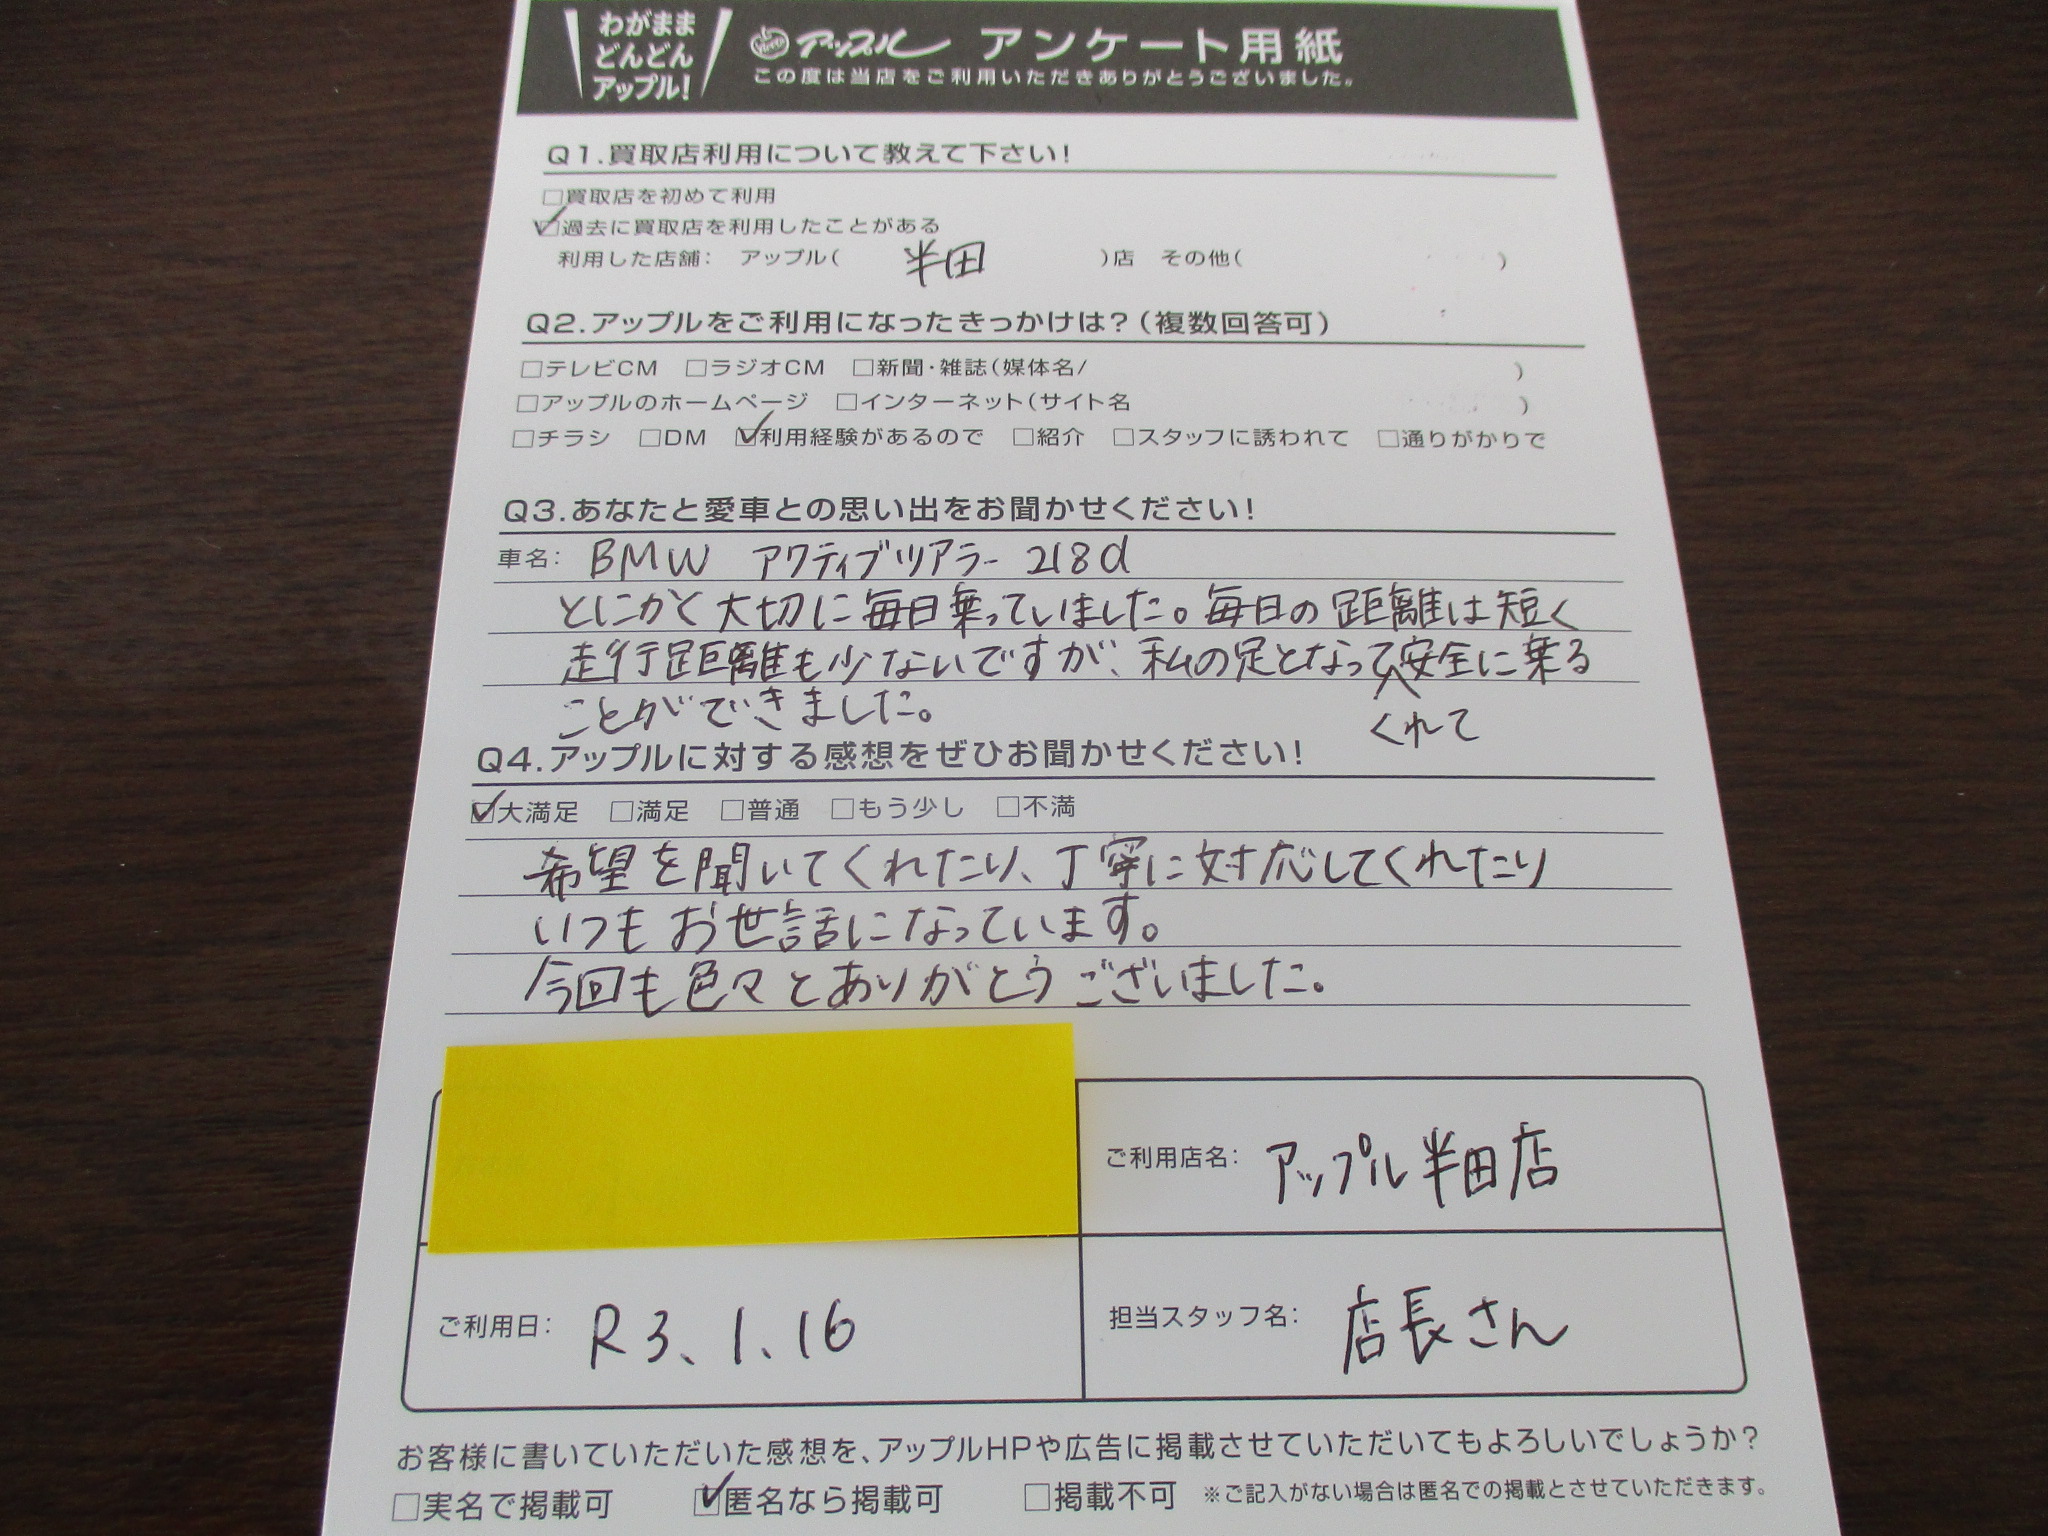 わがまま
どんどん
アップル!
アップル アンケート用紙
この度は当店をご利用いただきありがとうございました。
Q1.買取店利用について教えて下さい!
□買取店を初めて利用
☑過去に買取店を利用したことがある
利用した店舗: アップル( 半田 )店 その他( )
Q2.アップルをご利用になったきっかけは?(複数回答可)
□テレビCM □ラジオCM □新聞・雑誌(媒体名/ )
□アップルのホームページ □インターネット(サイト名 )
□チラシ □DM ☑利用経験があるので □紹介 □スタッフに誘われて □通りがかりで
Q3.あなたと愛車との思い出をお聞かせください!
車名: BMW アクティブツアラー 218d
とにかく大切に毎日乗っていました。毎日の距離は短く
走行距離も少ないですが、私の足となって安全に乗る
くれて
ことができました。
Q4.アップルに対する感想をぜひお聞かせください!
☑大満足 □満足 □普通 □もう少し □不満
希望を聞いてくれたり、丁寧に対応してくれたり
いつもお世話になっています。
今回も色々とありがとうございました。
ご利用店名: アップル半田店
ご利用日: R3、1、16
担当スタッフ名: 店長さん
お客様に書いていただいた感想を、アップルHPや広告に掲載させていただいてもよろしいでしょうか?
□実名で掲載可 ☑匿名なら掲載可 □掲載不可 ※ご記入がない場合は匿名での掲載とさせていただきます。